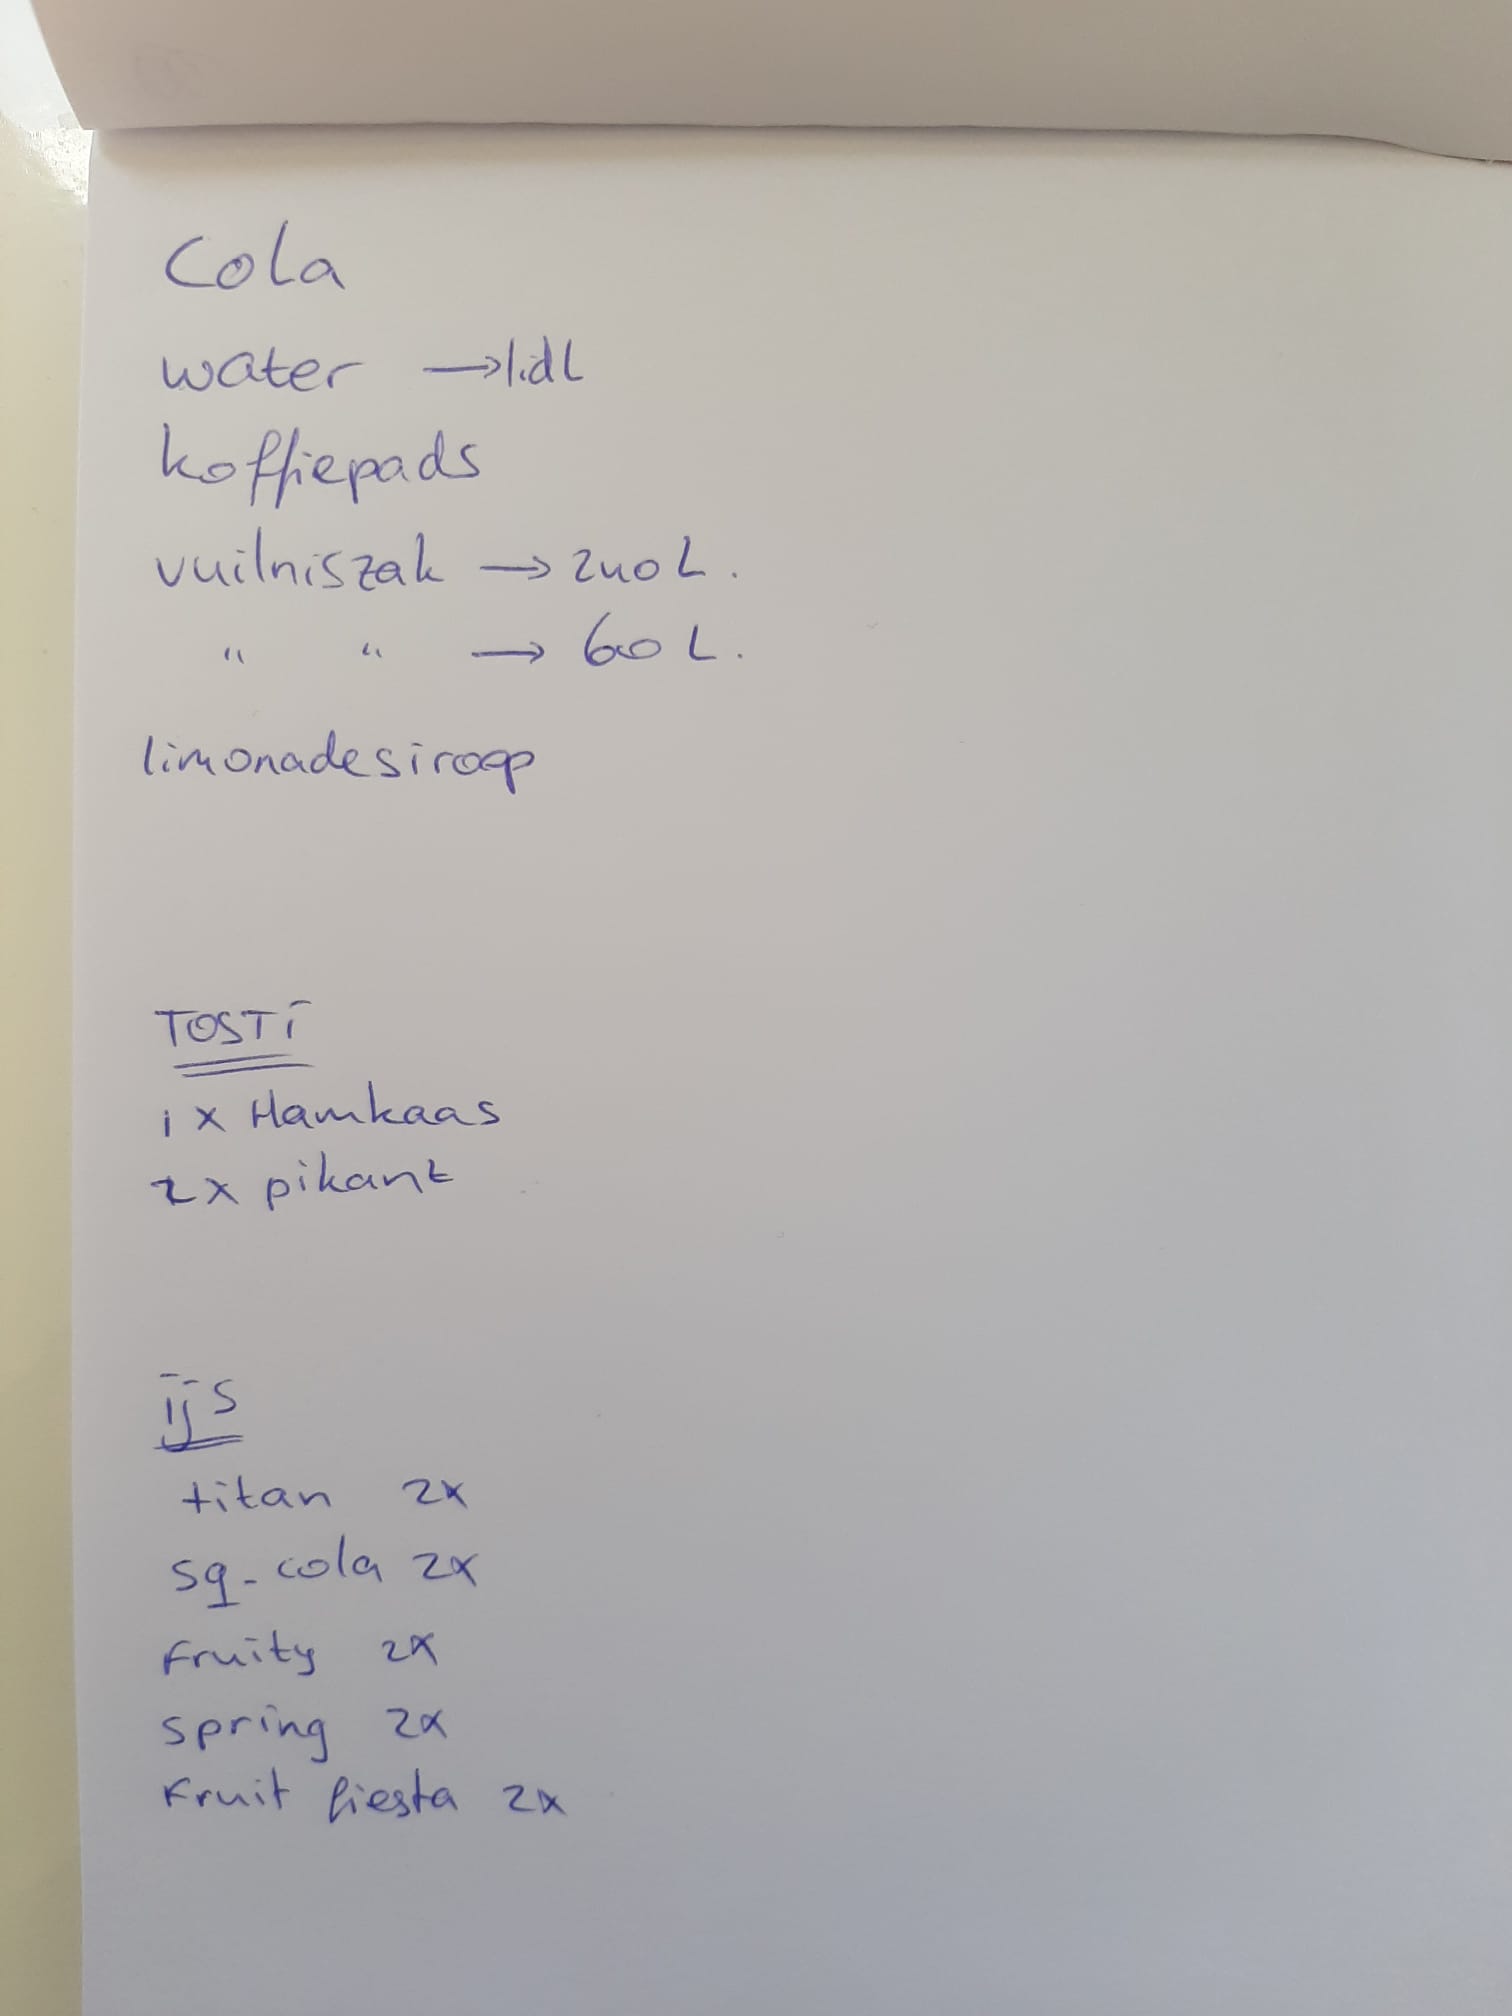 Cola
water → lidl
koffiepads
vuilniszak → 240 L.
" " → 60 L.
limonadesiroop
TOSTi
1 x Hamkaas
2x pikant
ijs
titan 2x
sq-cola 2x
Fruity 2x
spring 2x
Fruit fiesta 2x